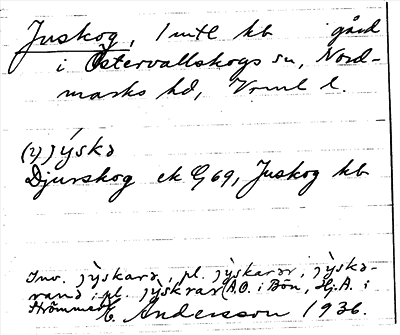 Juskog, 1 mtl kb gård
i Östervallskogs sn, Nord-
marks hd, Vrml l.
(2) jýskə
Djurskog ek G 69, Juskog kb
Inv. jỳskarə, pl. jỳskarər, jỳskə-
rand, pl. jỳskrar (A.O. i Bön, Hj.A. i
Strömmer) E. Andersson 1936.